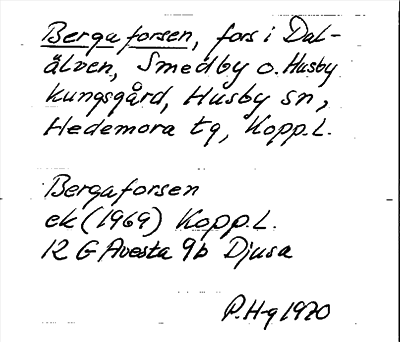 Bergaforsen, fors i Dal-
älven, Smedby o. Husby
kungsgård, Husby sn,
Hedemora tg, Kopp.l.
Bergaforsen
ek (1969) Kopp.l.
12 G Avesta 9b Djusa
P.H-g 1970